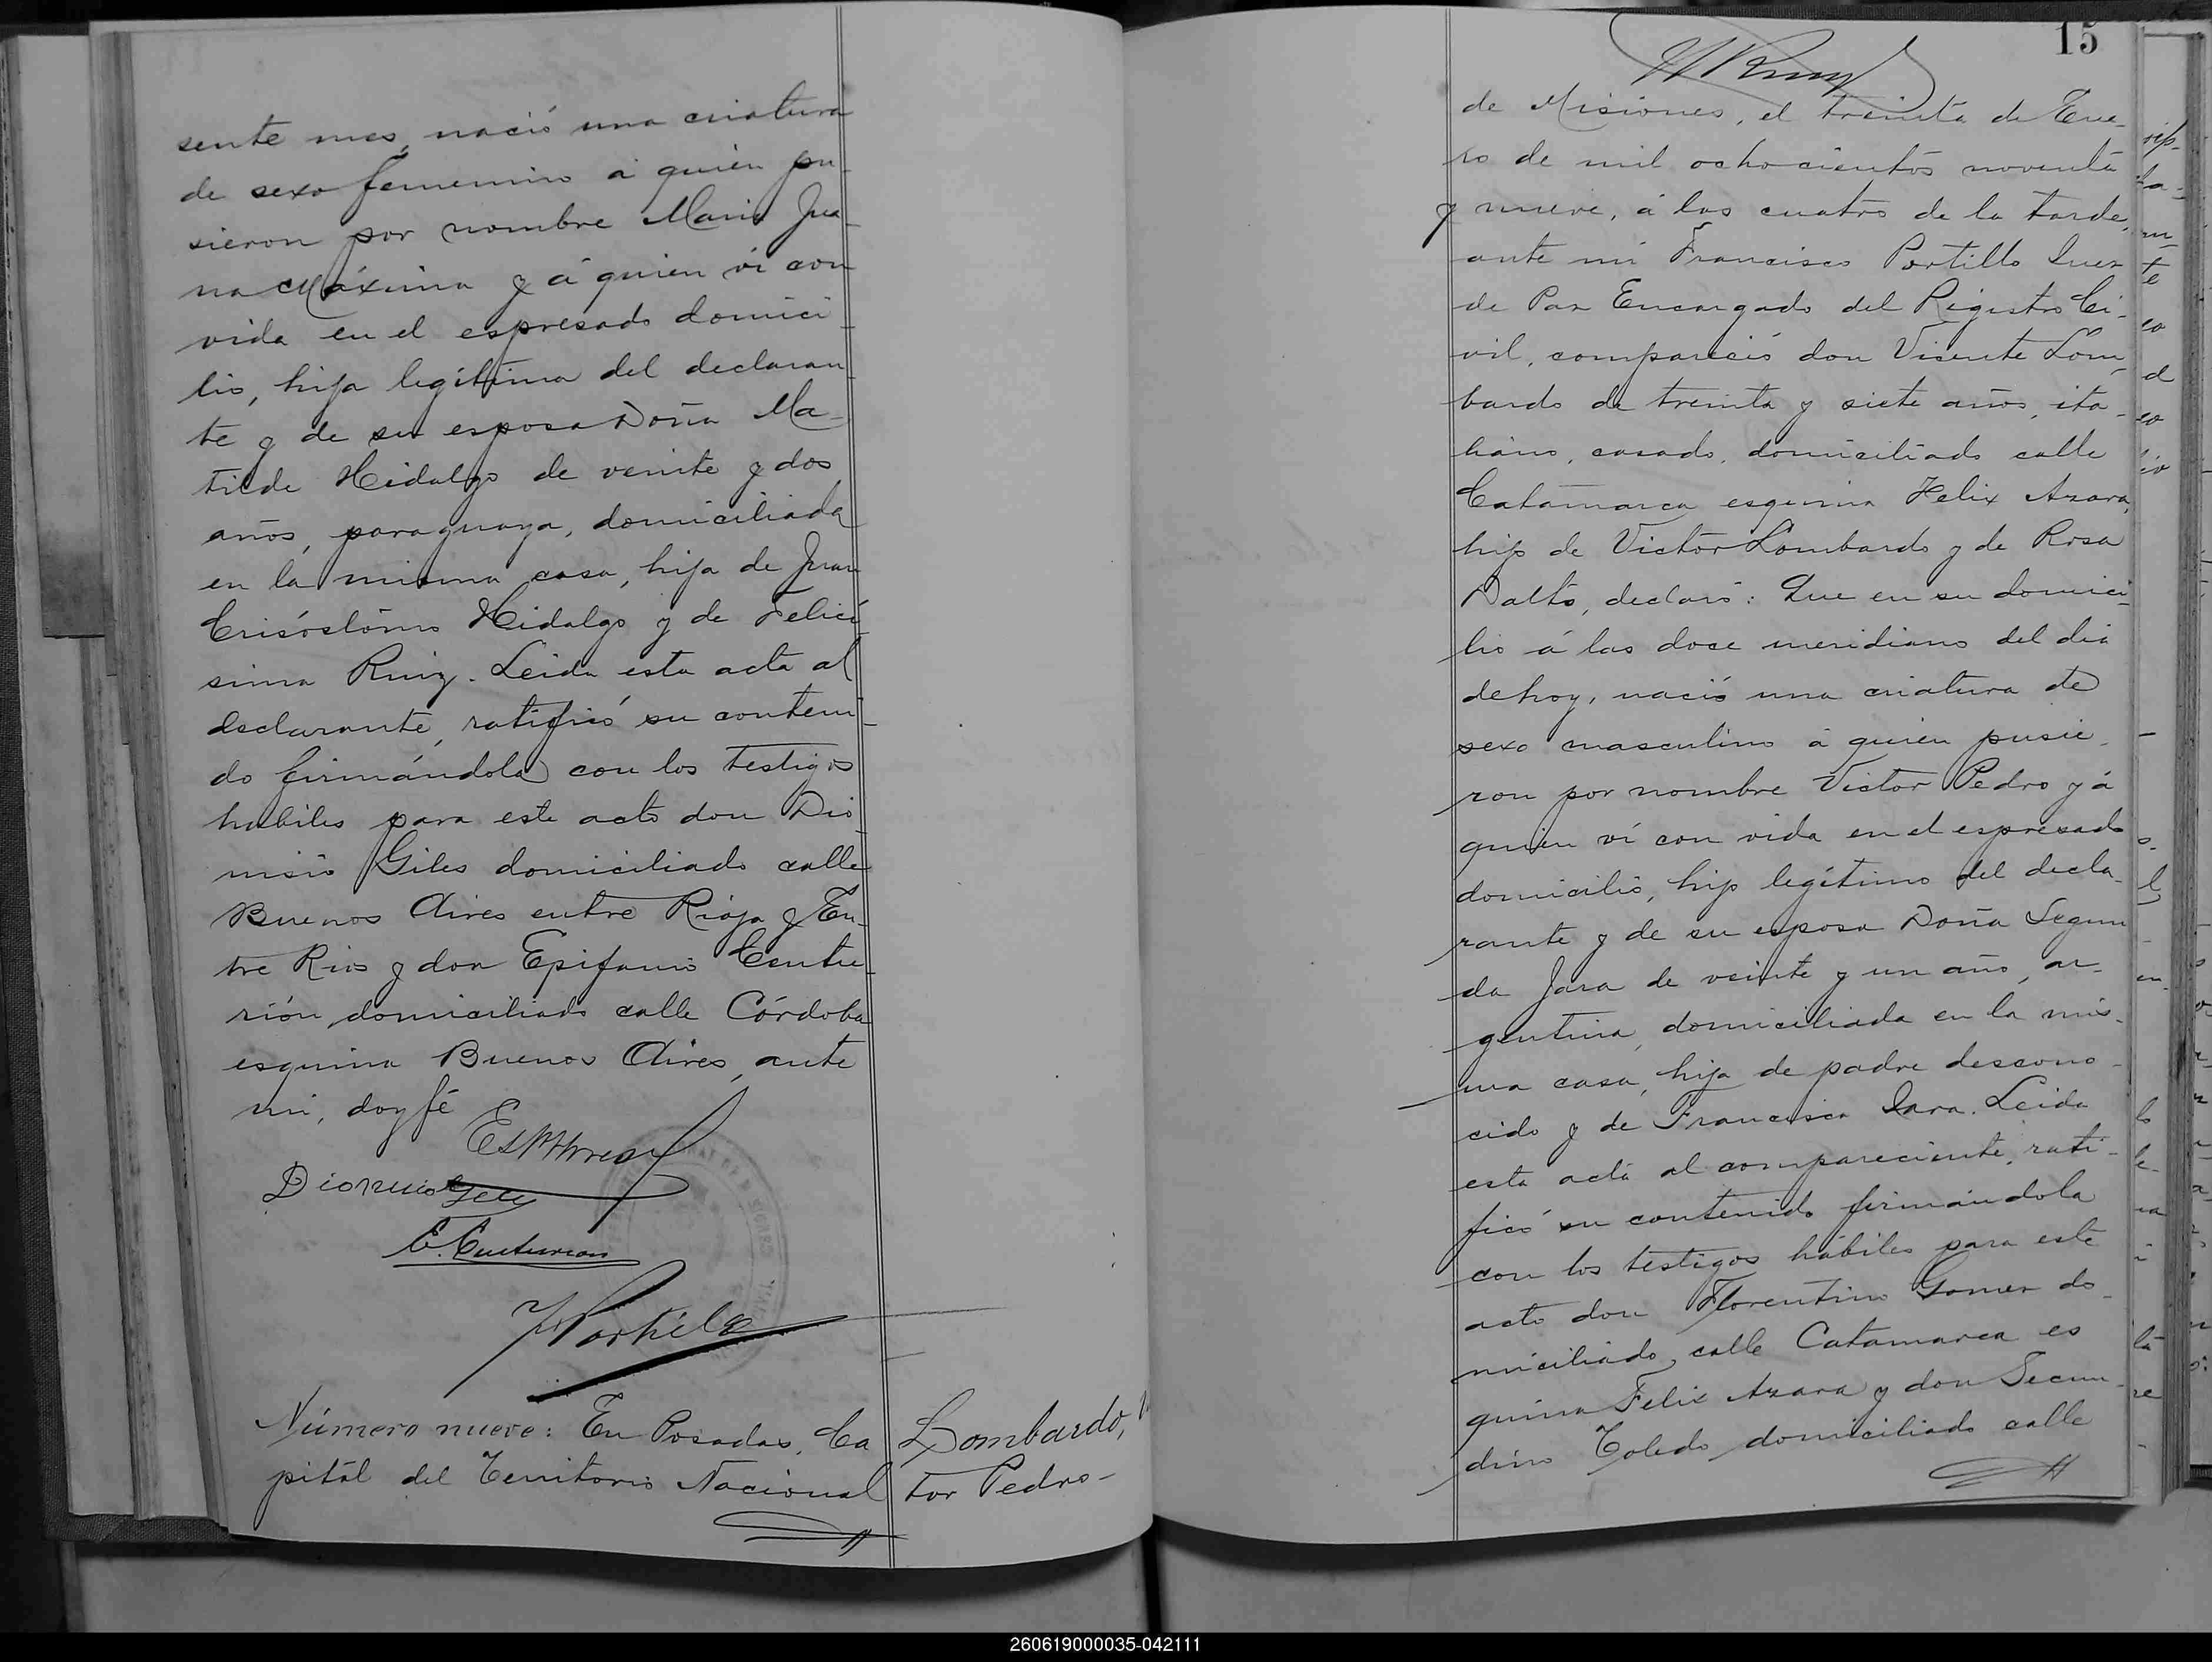 sente mes, nació una criatura
de sexo femenino á quien pu-
sieron por nombre Maria Jua-
na Máxima y á quien vi con
vida en el espresado domici-
lio, hija legítima del declaran-
te y de su esposa Doña Ma-
tilde Hidalgo de veinte y dos
años, paraguaya, domiciliada
en la misma casa, hija de Juan
Crisóstomo Hidalgo y de Felici-
sima Ruiz. Leida esta acta al
declarante, ratificó su conteni-
do firmándola con los testigos
habiles para este acto don Dio-
nisio Giles domiciliado calle
Buenos Aires entre Rioja y En-
tre Rios y don Epifanio Centu-
rión domiciliado calle Córdoba
esquina Buenos Aires, ante
mi, doy fé
Dionisio
E. Centurion
F Portillo
Número nueve: En Posadas, Ca
pital del Territorio Nacional
Lombardo,
tor Pedro-
15
de Misiones, el treinta de Ene-
ro de mil ochocientos noventa
y nueve, á las cuatro de la tarde,
ante mi Francisco Portillo Juez
de Paz Encargado del Registro Ci-
vil, compareció don Vicente Lom-
bardo de treinta y siete años, ita-
liano, casado, domiciliado calle
Catamarca esquina Felix Azara,
hijo de Victor Lombardo y de Rosa
Dalto, declaró: Que en su domici-
lio á las doce meridiano del dia
de hoy, nació una criatura de
sexo masculino á quien pusie-
ron por nombre Victor Pedro y á
quien ví con vida en el espresado
domicilio, hijo legítimo del decla-
rante y de su esposa Doña Segun
da Jara de veinte y un año, ar-
gentina, domiciliada en la mis-
ma casa, hija de padre descono-
cido y de Francisca Jara. Leida
esta acta al compareciente, rati-
ficó su contenido firmándola
con los testigos hábiles para este
acto don Florentino Gomez do-
miciliado calle Catamarca es
quina Felix Azara y don Secun-
dino Toledo domiciliado calle
260619000035-042111